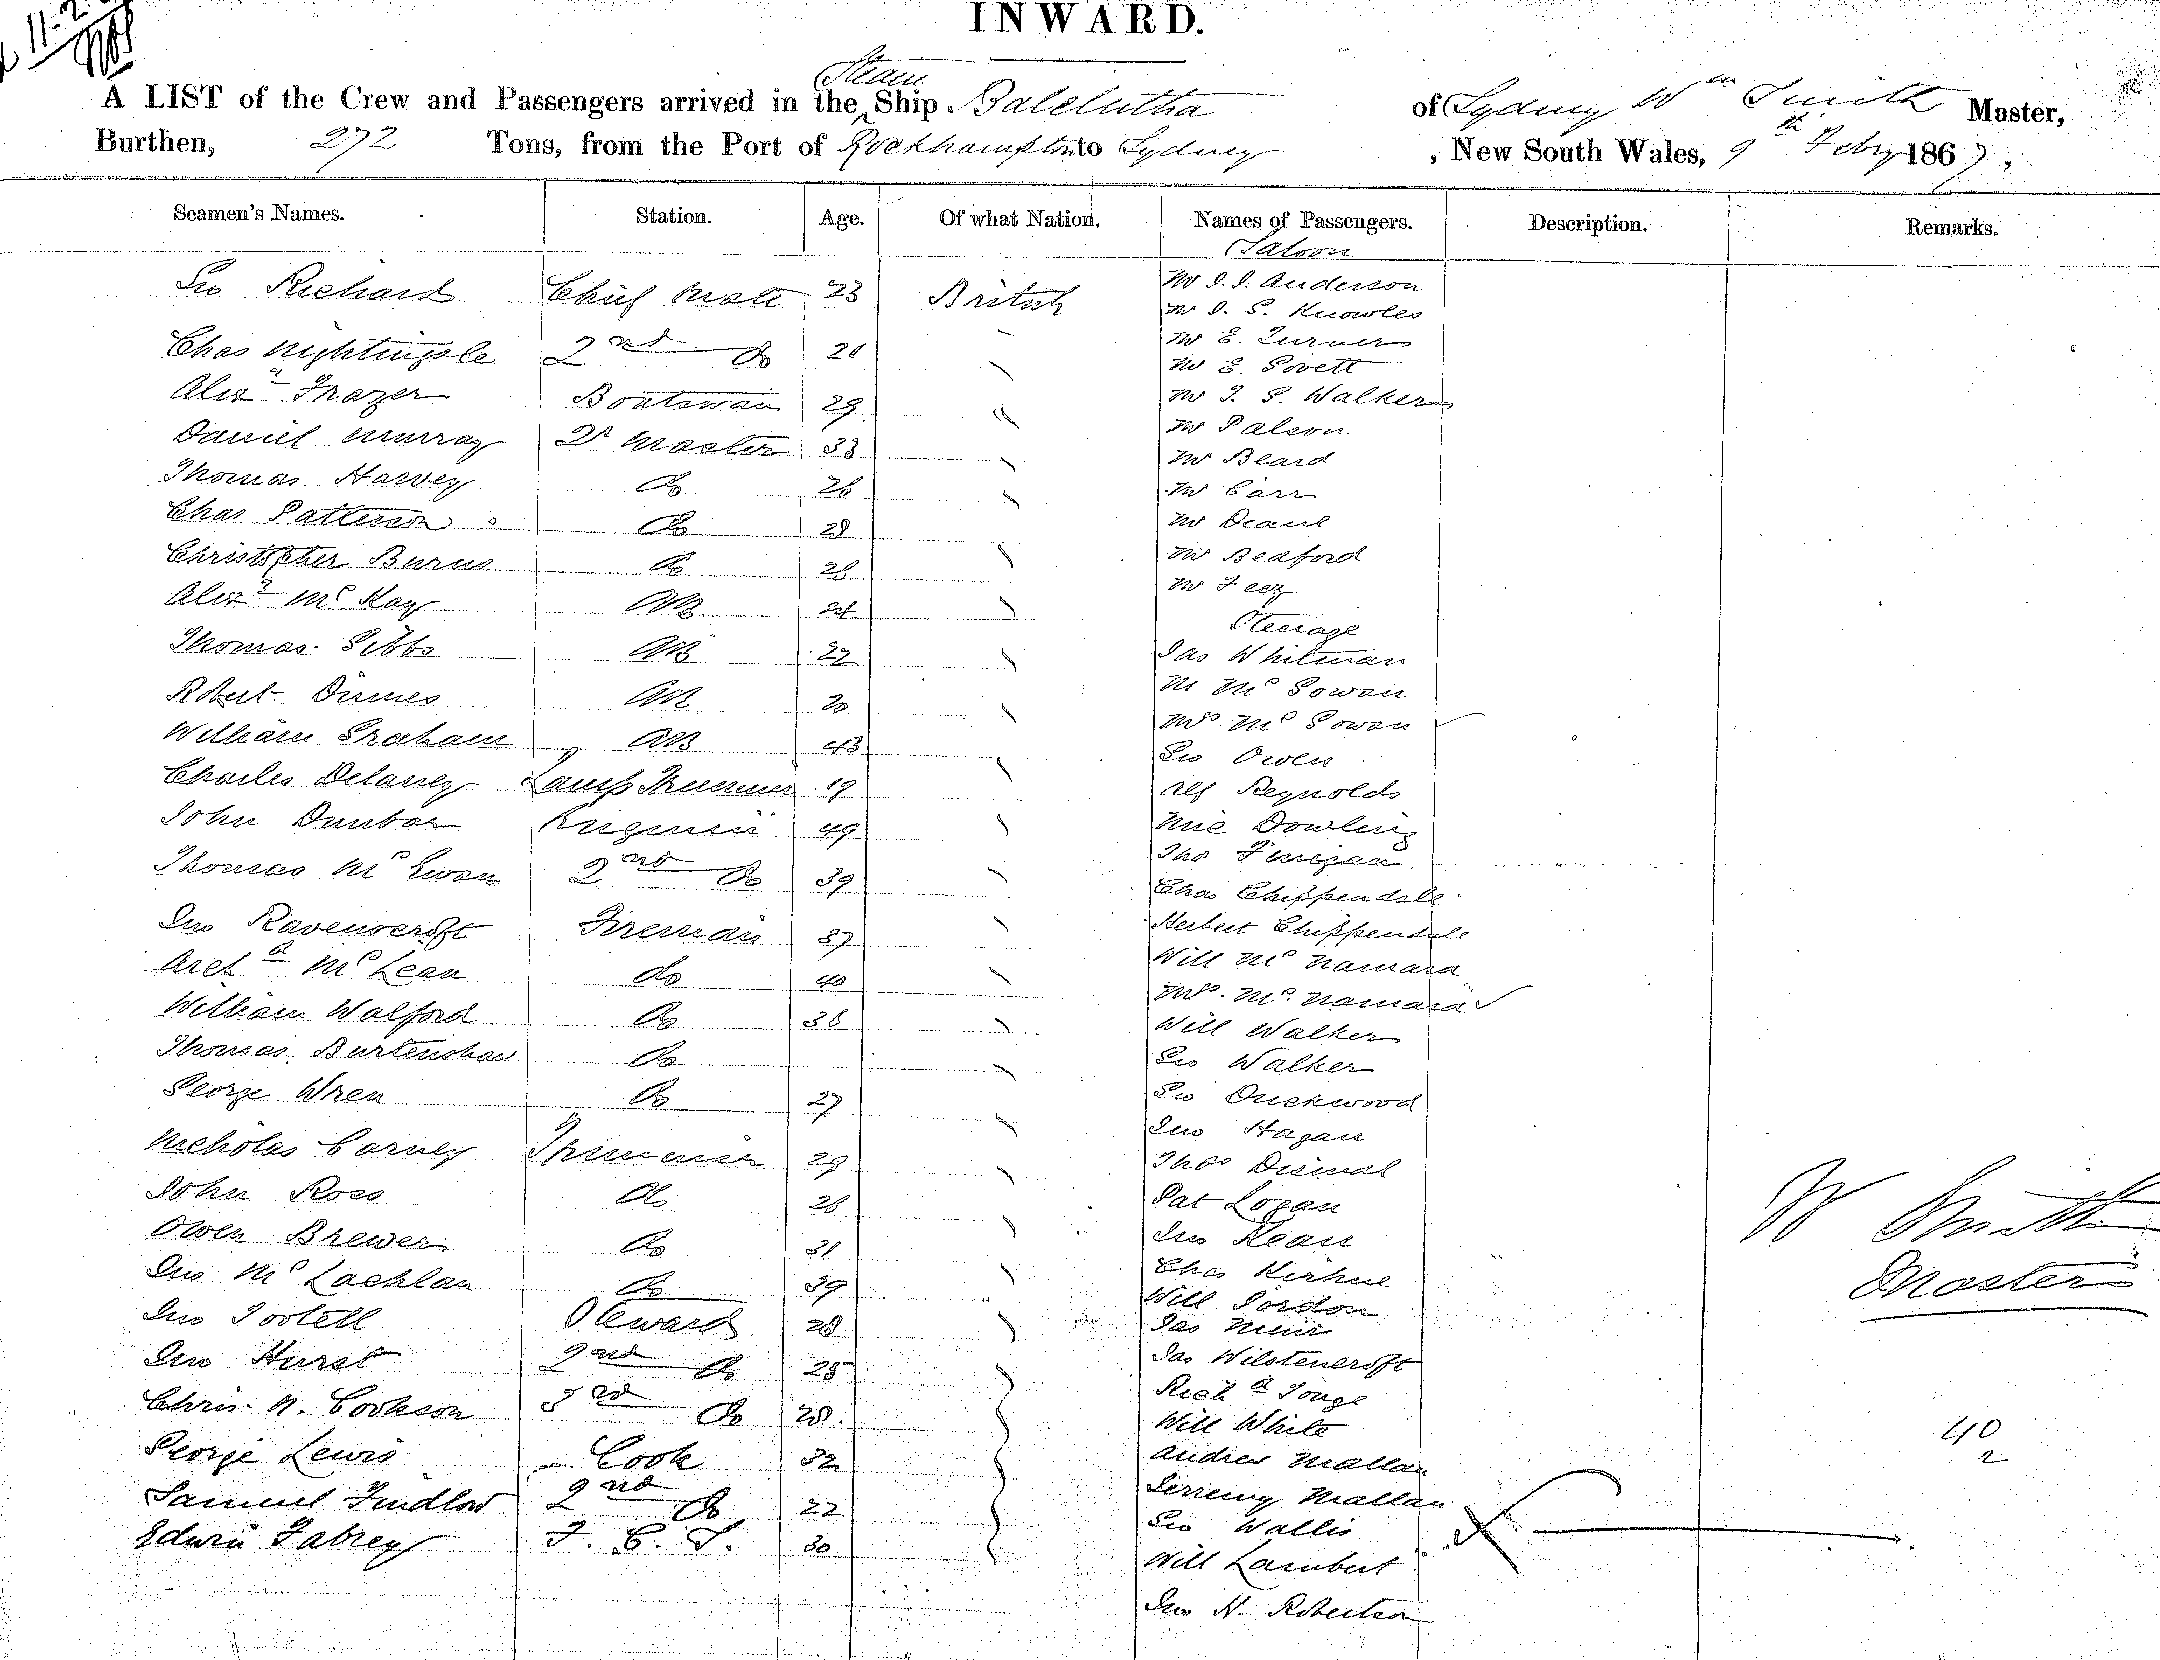 11.2.
INWARD.
A LIST of the Crew and Passengers arrived in the Steam Ship Balclutha of Sydney Wm Smith Master,
Burthen, 272 Tons, from the Port of Rockhampton to Sydney, New South Wales, 9th Febry 1867.
Seamen's Names. Station. Age. Of what Nation. Names of Passengers. Description. Remarks.
Saloon
Geo Richard Chief Mate 23 British Mr J. J. Anderson
Mr J. S. Knowles
Chas Nightingale 2nd Do 21 Mr E. Turner
Mr E. Govett
Alexr Frazer Boatswain 29 " Mr J. G. Walker
Daniel Murray Qr Master 33 Mr Palson
Mr Beard
Thomas Harvey Do 26 Mr Carr
Chas Patterson Do 28 Mr Deane
Christopher Burns Do 26 Mr Bedford
Mr Feez
Alexr McKay AB
Steerage
Thomas Gibbs AB 22 Jas Whitman
Robert Dimes AB 30 M McGowan
Mrs McGowan
William Graham AB 43 Geo Owen
Charles Delaney Lamps Trimmer 19 Alf Reynolds
John Dunbar Engineer 49 Mic Dowling
Thos Finigan
Thomas McEwan 2nd Do 39 Chas Chippendale
Jno Ravenscroft Fireman 37 Herbert Chippendale
Archd McLean do 40 Will McNamara
Mrs. McNamara
William Walford Do 36 Will Walker
Thomas Burtenshaw Do Geo Walker
George Wren Do 27 Geo Duckwood
Jno Hagan
Nicholas Corney Trimmer 29 Thos
John Ross do 26 Pat Logan
Owen Brewer Do 31 Jno Kean
Jno McLachlan Do 39 Chas
Will Gordon
Jno Tootell Steward 28 Jas Muir
Jno Hurst 2nd Do 25 Jas
Chris. N. Cookson 3rd Do 28 Richd Tonge
Will White
George Lewis Cook 32 Andrew Mallan
Samuel Findlow 2nd Do 22 Jerremy Mallan
Geo Wallis
Edwin Fabrey F. C. S. 30 Will Lambert
Jno N. Robertson
W Smith
Master
40
2